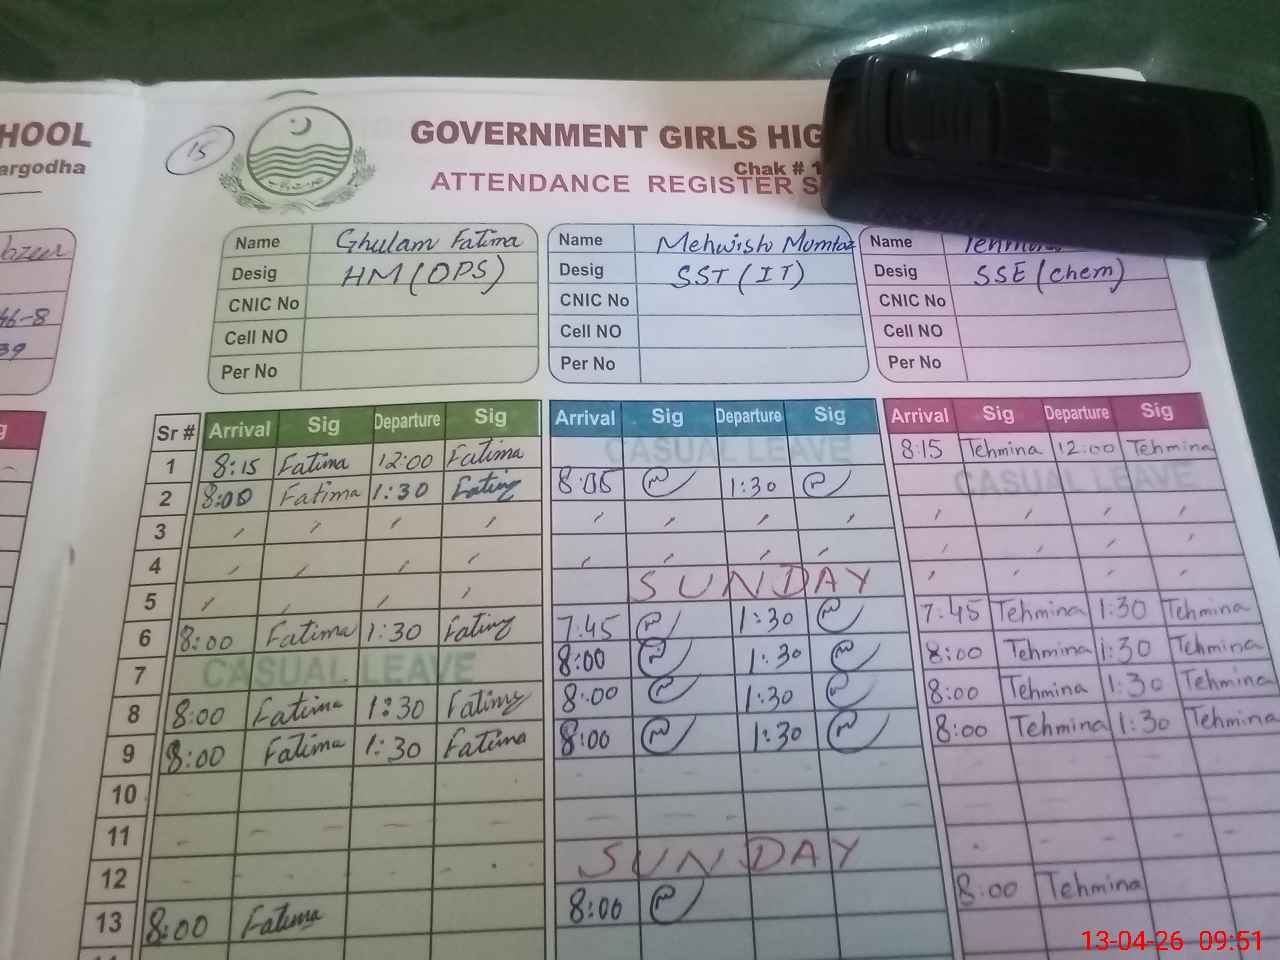 HOOL
argodha
46-8
39
15
GOVERNMENT GIRLS HIG
Chak # 1
ATTENDANCE REGISTER S
Name Ghulam Fatima Name Mehwish Mumtaz Name Tehmina
Desig HM (OPS) Desig SST (IT) Desig SSE (chem)
CNIC No CNIC No CNIC No
Cell NO Cell NO Cell NO
Per No Per No Per No
Sr # Arrival Sig Departure Sig Arrival Sig Departure Sig Arrival Sig Departure Sig
1 8:15 Fatima 12:00 Fatima CASUAL LEAVE 8:15 Tehmina 12:00 Tehmina
2 8:00 Fatima 1:30 Fatima 8:05 1:30 CASUAL LEAVE
3
4
5 SUNDAY
6 8:00 Fatima 1:30 Fatima 7:45 1:30 7:45 Tehmina 1:30 Tehmina
7 CASUAL LEAVE 8:00 1:30 8:00 Tehmina 1:30 Tehmina
8 8:00 Fatima 1:30 Fatima 8:00 1:30 8:00 Tehmina 1:30 Tehmina
9 8:00 Fatima 1:30 Fatima 8:00 1:30 8:00 Tehmina 1:30 Tehmina
10
11
12 SUNDAY
13 8:00 Fatima 8:00 8:00 Tehmina
13-04-26 09:51